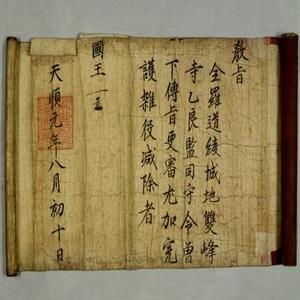 敎旨
全羅道綾城地雙峰
寺乙良監司守令曾
下傳旨更審尤加完
護雜役減除者
國王
天順元年八月初十日